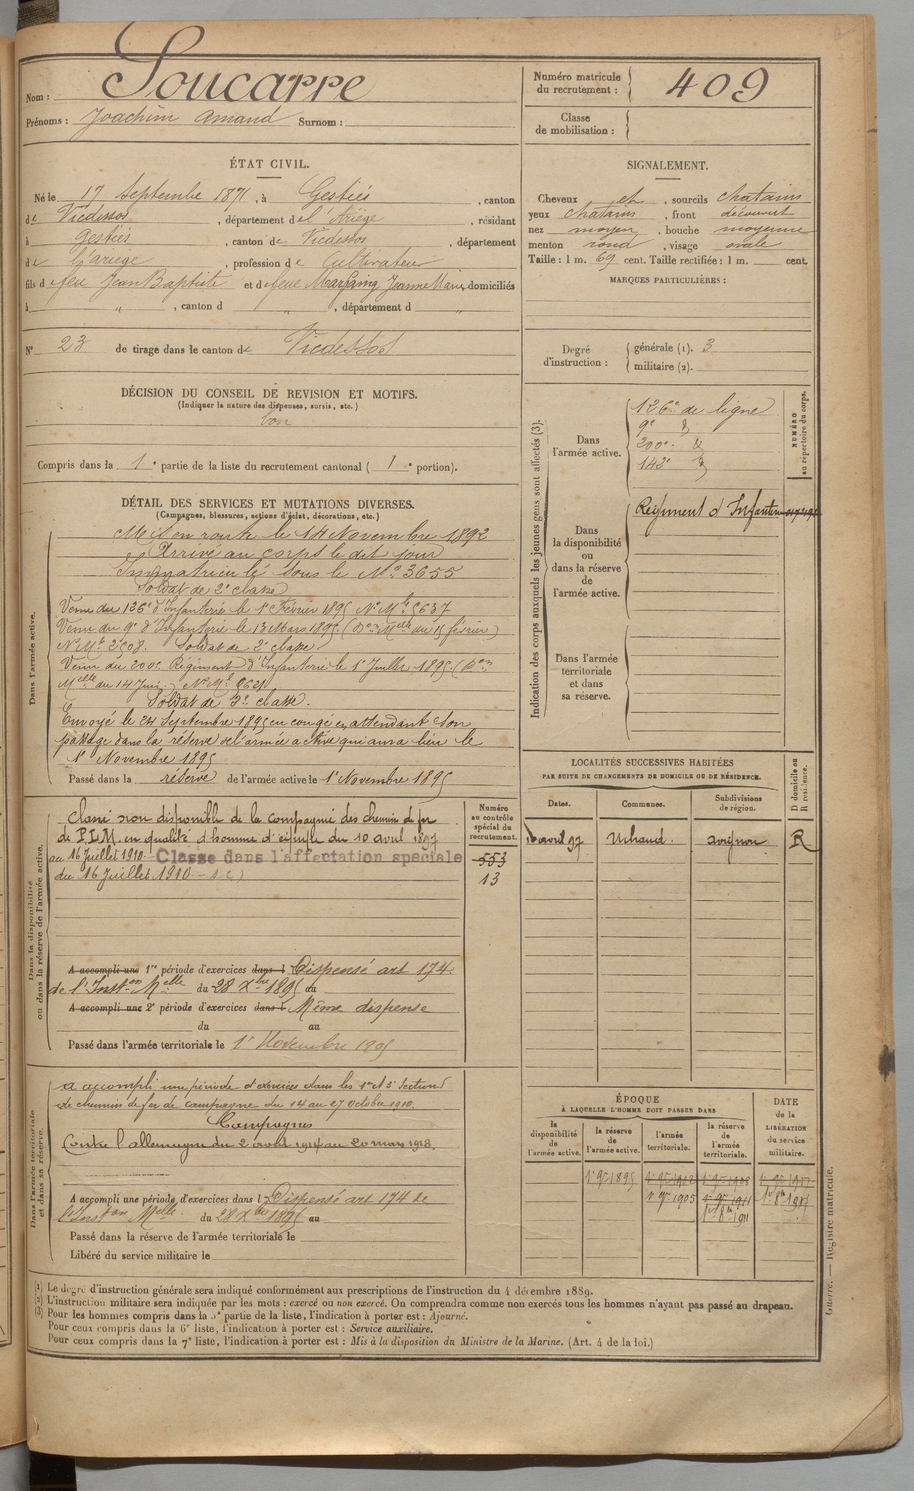 Nom : Soucarre
Prénoms : Joachim Amand Surnom :
Numéro matricule du recrutement : 409
Classe de mobilisation :
ÉTAT CIVIL.
Né le 17 Septembre 1871, à Gestiés, canton
de Vicdessos, département de l'Ariège, résidant
à Gestiés, canton de Vicdessos, département
de l'Ariège, profession de Cultivateur
fils de feu Jean Baptiste et de feue Jeanne Marie, domiciliés
à " , canton d " , département d "
N° 23 de tirage dans le canton de Vicdessos
SIGNALEMENT.
Cheveux et , sourcils chatains
yeux chatains , front découvert
nez moyen , bouche moyenne
menton rond , visage ovale
Taille : 1 m. 69 cent. Taille rectifiée : 1 m. cent.
MARQUES PARTICULIÈRES :
Degré d'instruction :
générale (1). 3
militaire (2).
DÉCISION DU CONSEIL DE REVISION ET MOTIFS.
(Indiquer la nature des dispenses, sursis, etc.)
bon
Compris dans la 1e partie de la liste du recrutement cantonal ( 1e portion).
DÉTAIL DES SERVICES ET MUTATIONS DIVERSES.
(Campagnes, blessures, actions d'éclat, décorations, etc.)
Dans l'armée active.
Mis en route le 14 Novembre 1892
Arrivé au corps le dit jour
Immatriculé sous le No 3655
Soldat de 2e classe
Venu du 126e d'Infanterie le 1er Février 1895 No Mle 5637
Venu du 9e d'Infanterie le 13 Mars 1895 (Don Melle du 15 février)
No Mle 2508. Soldat de 2e classe
Venu du 200e Régiment d'Infanterie le 1er Juillet 1895 (Don
Melle du 14 Juin) No Ml
Soldat de 2e classe.
Envoyé le 24 Septembre 1895 en congé en attendant son
passage dans la réserve de l'armée active qui aura lieu le
1er Novembre 1895
Passé dans la réserve de l'armée active le 1er Novembre 1895
Indication des corps auxquels les jeunes gens sont affectés (3).
Dans l'armée active.
126e de ligne
9e d
200e d
142e d
NUMÉRO au répertoire du corps.
Dans la disponibilité ou dans la réserve de l'armée active.
Régiment d'Infanterie
Dans l'armée territoriale et dans sa réserve.
Dans la disponibilité ou dans la réserve de l'armée active.
Classé non disponible de la compagnie des chemin de fer
de P.L.M. en qualité d'homme d'équipe du 10 avril 1897
au 16 Juillet 1910 Classe dans l'affectation spéciale
du 16 Juillet 1910 - s.c)
Numéro au contrôle spécial du recrutement.
553
13
A accompli une 1re période d'exercices dans l Dispensé art 174
de l'Inston Melle du 28 Xbre 1895 au
A accompli une 2e période d'exercices dans l Même dispense
du au
Passé dans l'armée territoriale le 1er Novembre 1905
LOCALITÉS SUCCESSIVES HABITÉES
PAR SUITE DE CHANGEMENTS DE DOMICILE OU DE RÉSIDENCE.
Dates. Communes. Subdivisions de région. D domicile ou R résidence.
avril 97 Uchaud. avignon R
Dans l'armée territoriale et dans sa réserve.
a accompli une période d'exercices dans les 1re et 5e Sections
de chemins de fer de campagne du 14 au 27 octobre 1910.
Campagnes
Contre l'allemagne du 2 août 1914 au 20 mars 1918.
A accompli une période d'exercices dans l Dispensé art 174 de
l'Inston Melle du 28 Xbre 1895 au
Passé dans la réserve de l'armée territoriale le
Libéré du service militaire le
ÉPOQUE
À LAQUELLE L'HOMME DOIT PASSER DANS
la disponibilité de l'armée active.
la réserve de l'armée active.
l'armée territoriale.
la réserve de l'armée territoriale.
DATE de la LIBÉRATION du service militaire.
1er 9bre 1895
1er 9bre 1905 1er 9bre 1911
Guerre. — Registre matricule.
(1) Le degré d'instruction générale sera indiqué conformément aux prescriptions de l'instruction du 4 décembre 1889.
(2) L'instruction militaire sera indiquée par les mots : exercé ou non exercé. On comprendra comme non exercés tous les hommes n'ayant pas passé au drapeau.
(3) Pour les hommes compris dans la 5e partie de la liste, l'indication à porter est : Ajourné.
Pour ceux compris dans la 6e liste, l'indication à porter est : Service auxiliaire.
Pour ceux compris dans la 7e liste, l'indication à porter est : Mis à la disposition du Ministre de la Marine. (Art. 4 de la loi.)